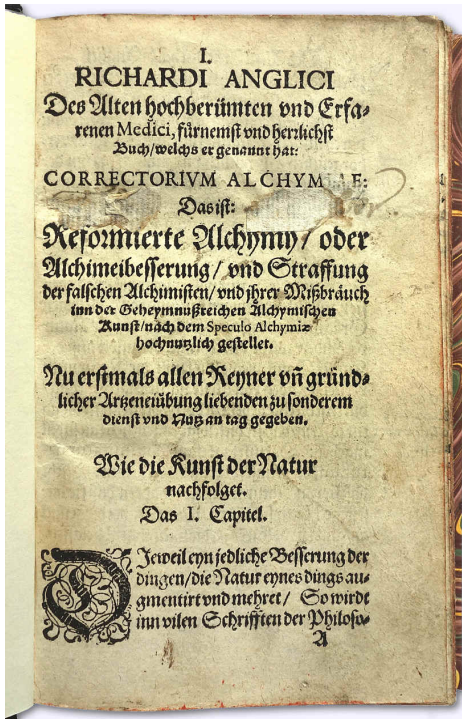 I.
RICHARDI ANGLICI
Des Alten hochberümten vnd Erfa-
renen Medici, fürnemst vnd herrlichst
Buch/welchs er genannt hat:
CORRECTORIVM ALCHYMIAE:
Das ist:
Reformierte Alchymy/ oder
Alchimeibesserung/ vnd Straffung
der falschen Alchimisten/vnd jhrer Mißbräuch
inn der Geheymnüßreichen Alchymischen
Kunst/nach dem Speculo Alchymiæ
hochnutzlich gestellet.
Nu erstmals allen Reyner vn̄ gründ-
licher Artzeneiübung liebenden zu sonderem
dienst vnd Nutz an tag gegeben.
Wie die Kunst der Natur
nachfolget.
Das I. Capitel.
DJeweil eyn jedliche Besserung der
dingen/die Natur eynes dings au-
gmentirt vnd mehret/ So wirdt
inn vilen Schrifften der Philoso-
A